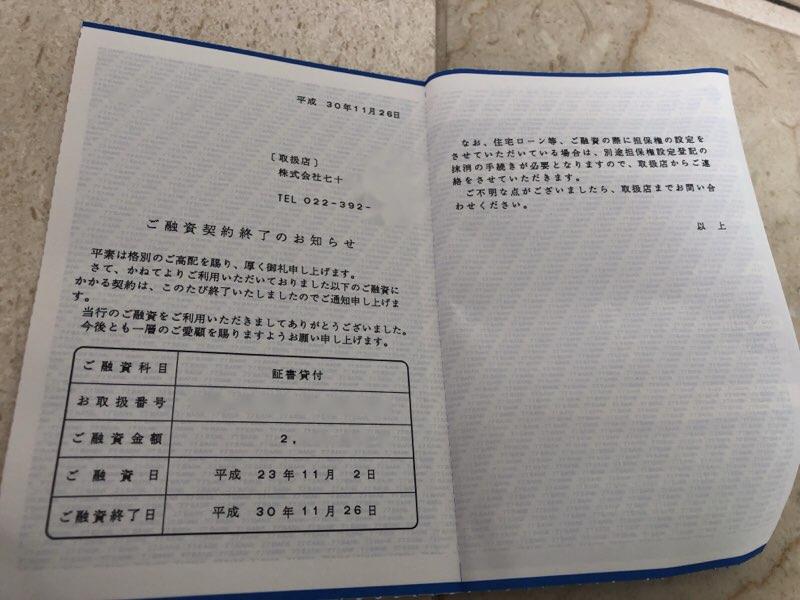 平成 30年11月26日
[取扱店]
株式会社七十
TEL 022-392-
ご融資契約終了のお知らせ
平素は格別のご高配を賜り、厚く御礼申し上げます。
さて、かねてよりご利用いただいておりました以下のご融資に
かかる契約は、このたび終了いたしましたのでご通知申し上げま
す。
当行のご融資をご利用いただきましてありがとうございました。
今後とも一層のご愛顧を賜りますようお願い申し上げます。
ご融資科目 証書貸付
お取扱番号
ご融資金額 2,
ご融資日 平成 23年11月 2日
ご融資終了日 平成 30年11月26日
なお、住宅ローン等、ご融資の際に担保権の設定を
させていただいている場合は、別途担保権設定登記の
抹消の手続きが必要となりますので、取扱店からご連
絡をさせていただきます。
ご不明な点がございましたら、取扱店までお問い合
わせください。
以上